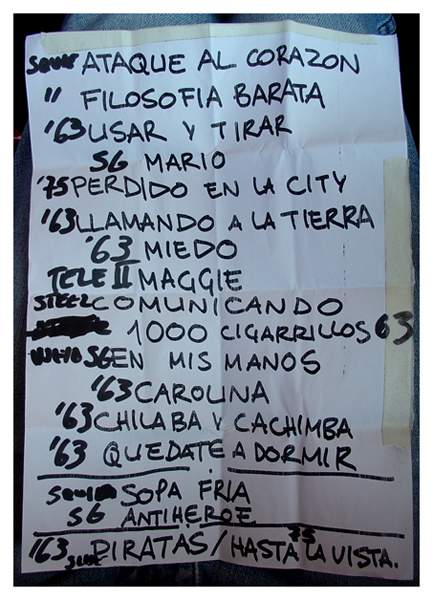 ATAQUE AL CORAZON
" FILOSOFIA BARATA
'63 USAR Y TIRAR
SG MARIO
'75 PERDIDO EN LA CITY
'63 LLAMANDO A LA TIERRA
'63 MIEDO
TELE II MAGGIE
STEEL COMUNICANDO
1000 CIGARRILLOS 63
SG EN MIS MANOS
'63 CAROLINA
'63 CHILABA Y CACHIMBA
'63 QUEDATE A DORMIR
SOPA FRIA
SG ANTIHEROE
'63 PIRATAS / HASTA LA VISTA. 75